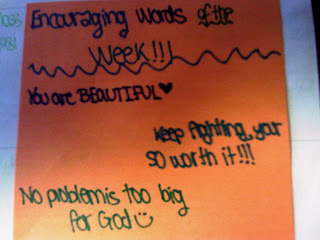 Encouraging Words of the
Week!!!
You are BEAUTIFUL♥
Keep fighting, your
SO worth it!!!
No problem is too big
for God☺